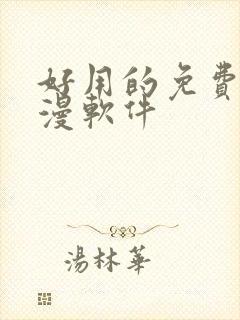 好用的免費
漫軟件
湯林華